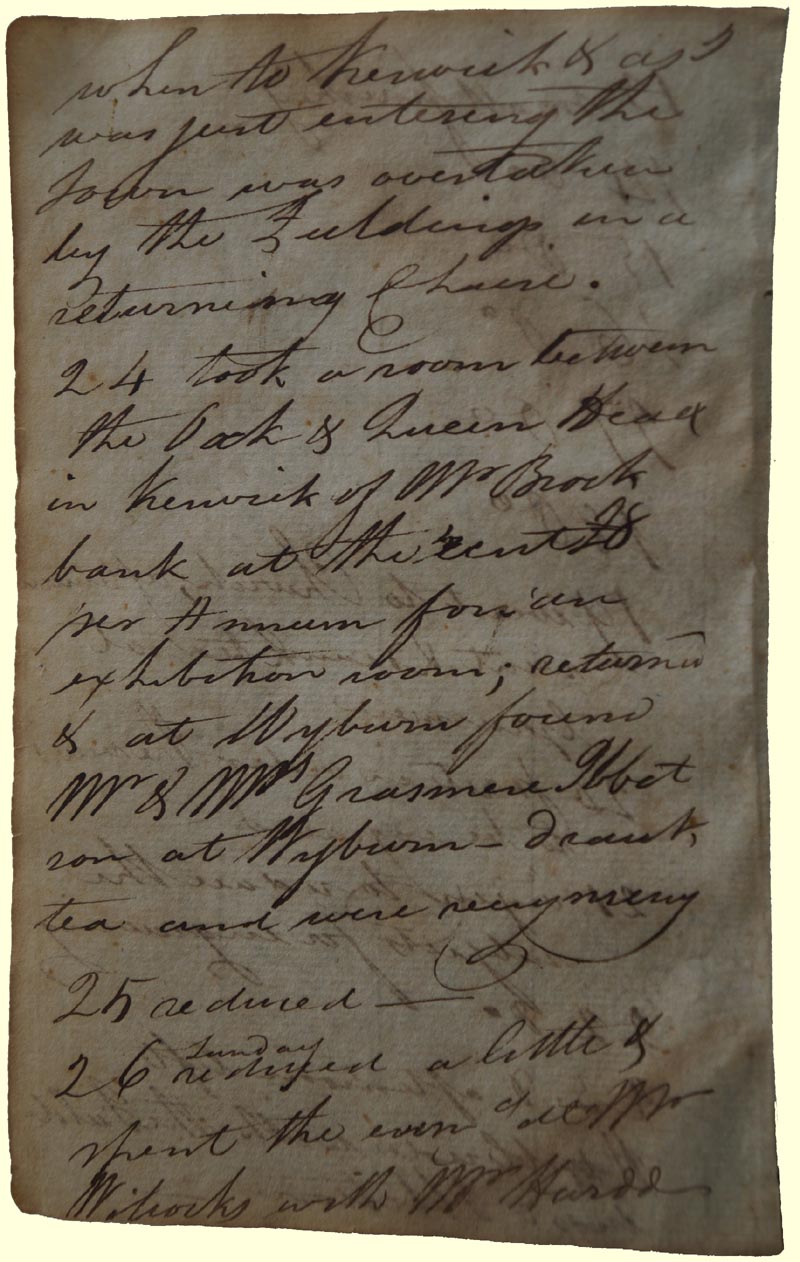 when to Keswick & as I
was just entering the
Town was overtaken
by the Fieldings in a
returning Chaise.
24 took a room between
the Oak & Queen Head
in Keswick of Mr Brock
bank at the rent
per Annum for an
exhibition room; return'd
& at Wyburn found
Mr & Mrs Grasmere Ibbot
son at Wyburn - drank
tea and were
25 reduced —
Sunday
26 reduced a little &
spent the even at Mr
Wilcocks with Mr